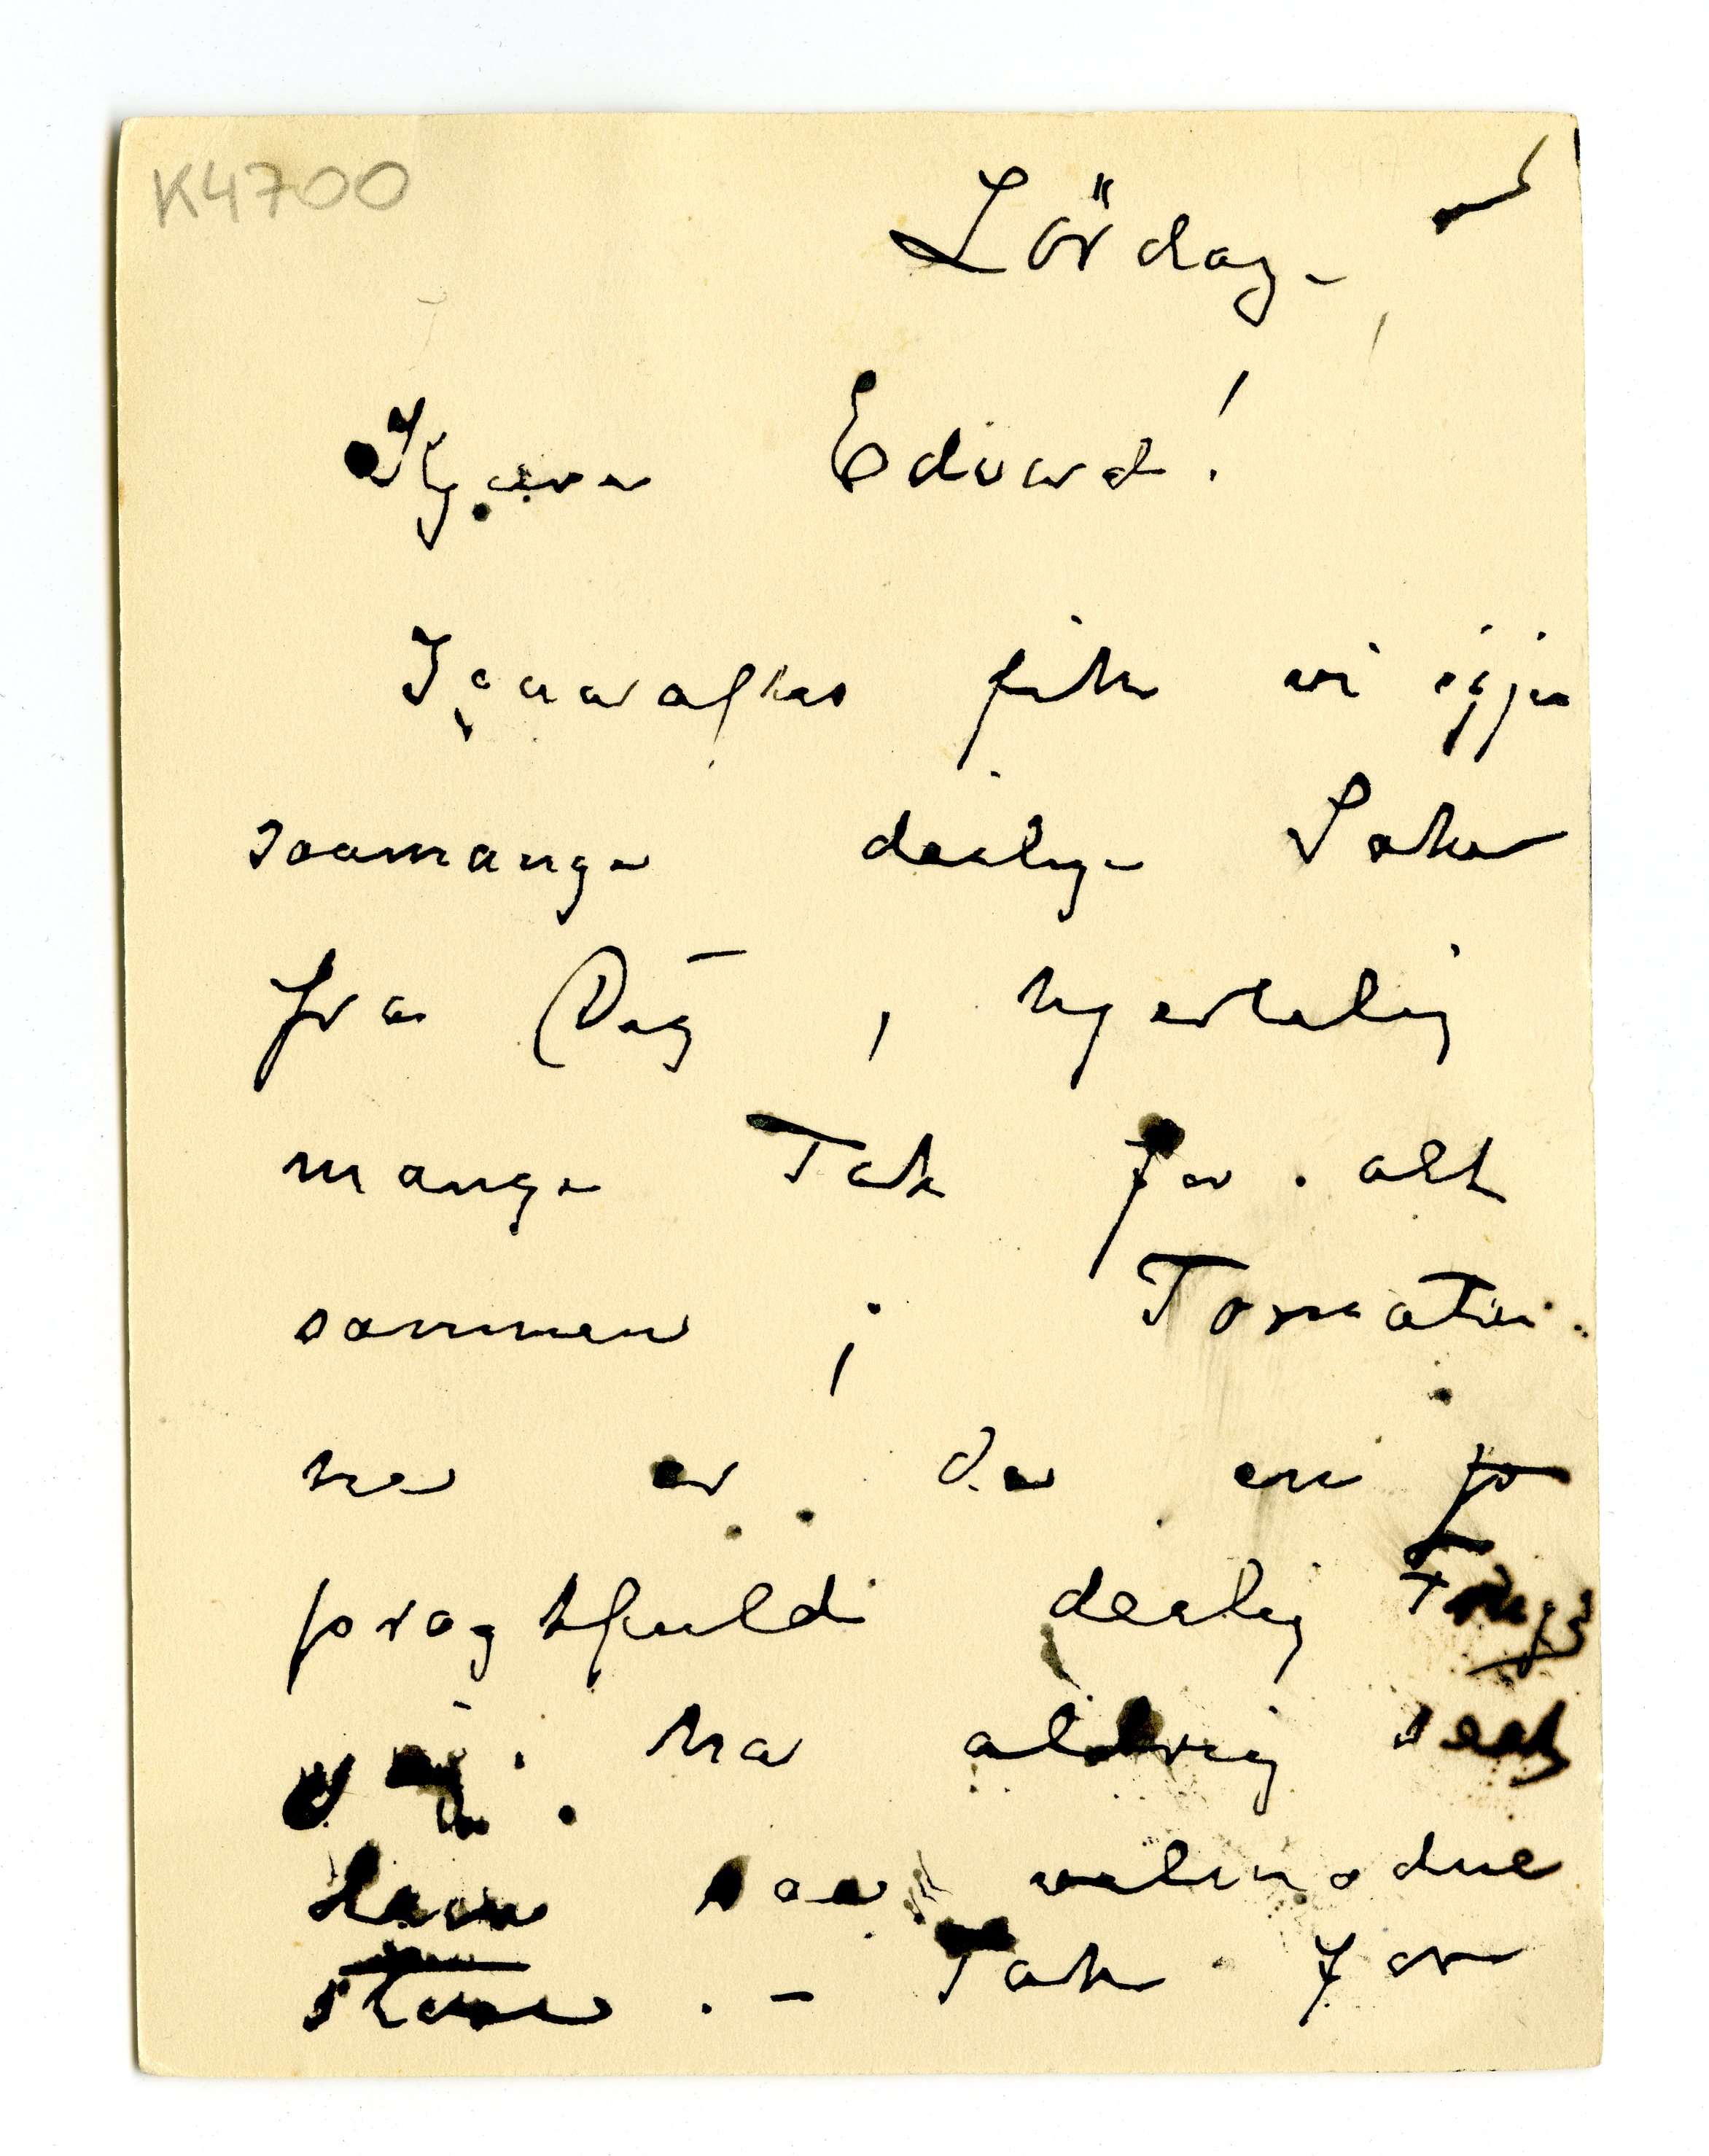 K4700
Lördag.
Kjære Edvard!
Igaaraftes fik vi igjen
saamange deilige Saker
fra Dig, hjertelig
mange Tak for alt
sammen; Tomater
ne er da en
pragtfuld deilig Frugt
jeg ha aldrig seet
dem saa velmodne
store. – Tak for